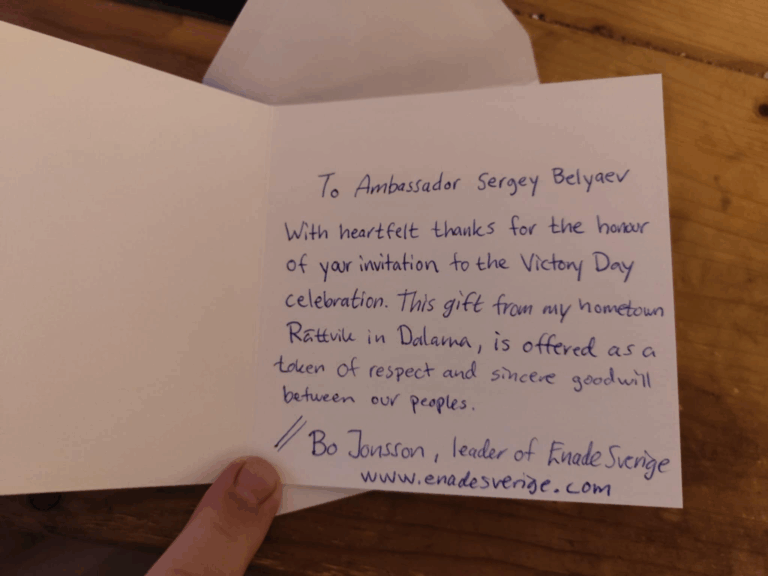 To Ambassador Sergey Belyaev
With heartfelt thanks for the honour
of your invitation to the Victory Day
celebration. This gift from my hometown
Rättvik in Dalarna, is offered as a
token of respect and sincere goodwill
between our peoples.
// Bo Jonsson, leader of Enade Sverige
www.enadesverige.com